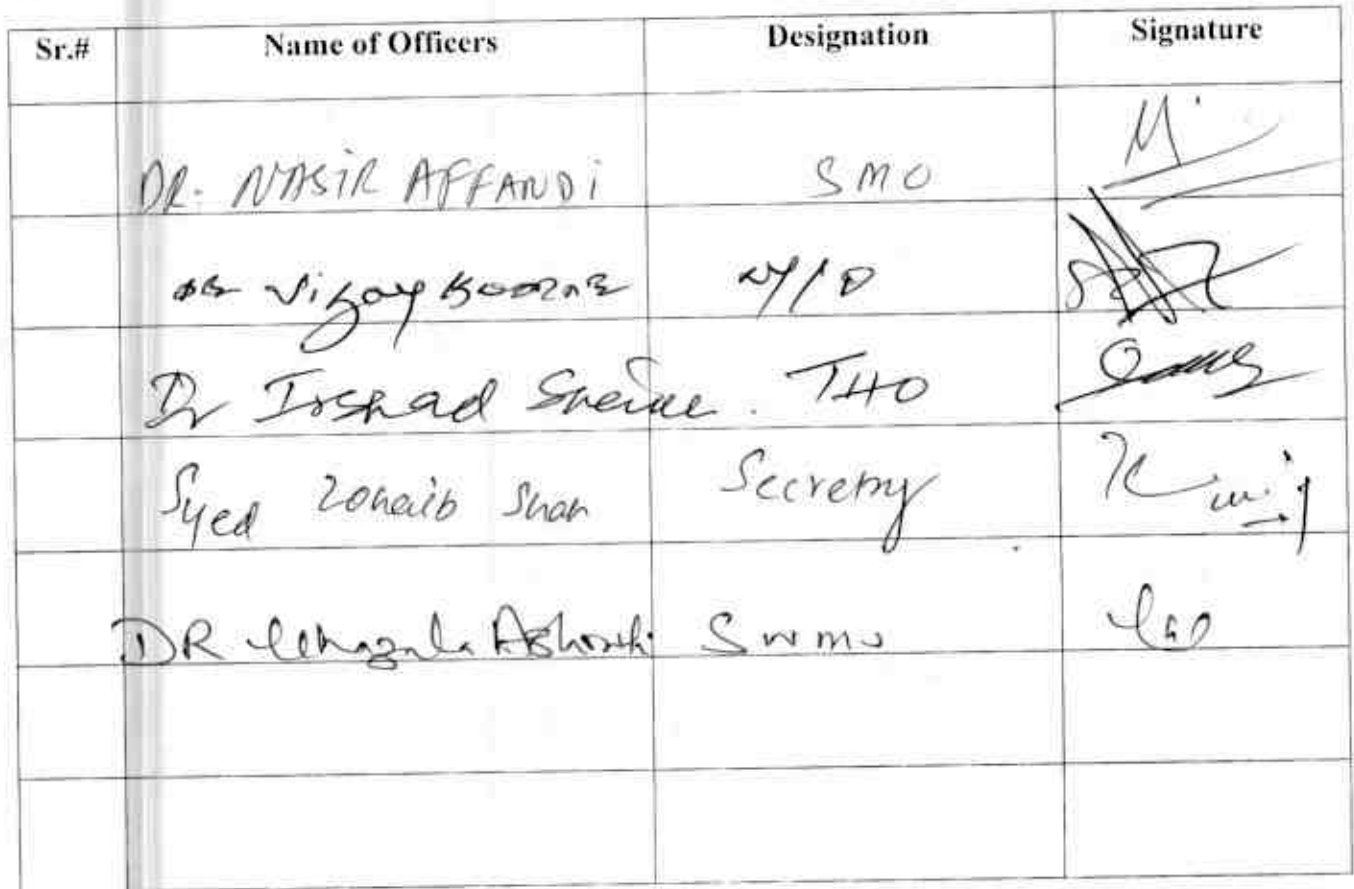 Sr.# Name of Officers Designation Signature
DR. NASIR AFFANDI SMO
Dr Vijay Kumar
Dr Irshad THO
Syed Zohaib Shah Secretry
DR Ghazala SWMO